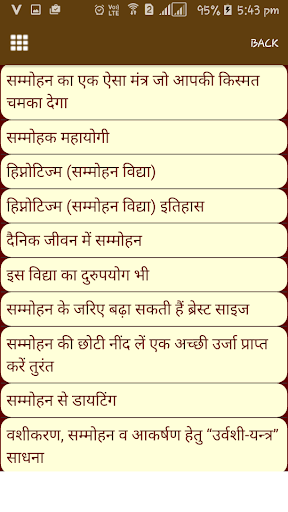 VoLTE 2 95% 5:43 pm
BACK
सम्मोहन का एक ऐसा मंत्र जो आपकी किस्मत
चमका देगा
सम्मोहक महायोगी
हिप्नोटिज्म (सम्मोहन विद्या)
हिप्नोटिज्म (सम्मोहन विद्या) इतिहास
दैनिक जीवन में सम्मोहन
इस विद्या का दुरुपयोग भी
सम्मोहन के जरिए बढ़ा सकती हैं ब्रेस्ट साइज
सम्मोहन की छोटी नींद लें एक अच्छी उर्जा प्राप्त
करें तुरंत
सम्मोहन से डायटिंग
वशीकरण, सम्मोहन व आकर्षण हेतु “उर्वशी-यन्त्र”
साधना